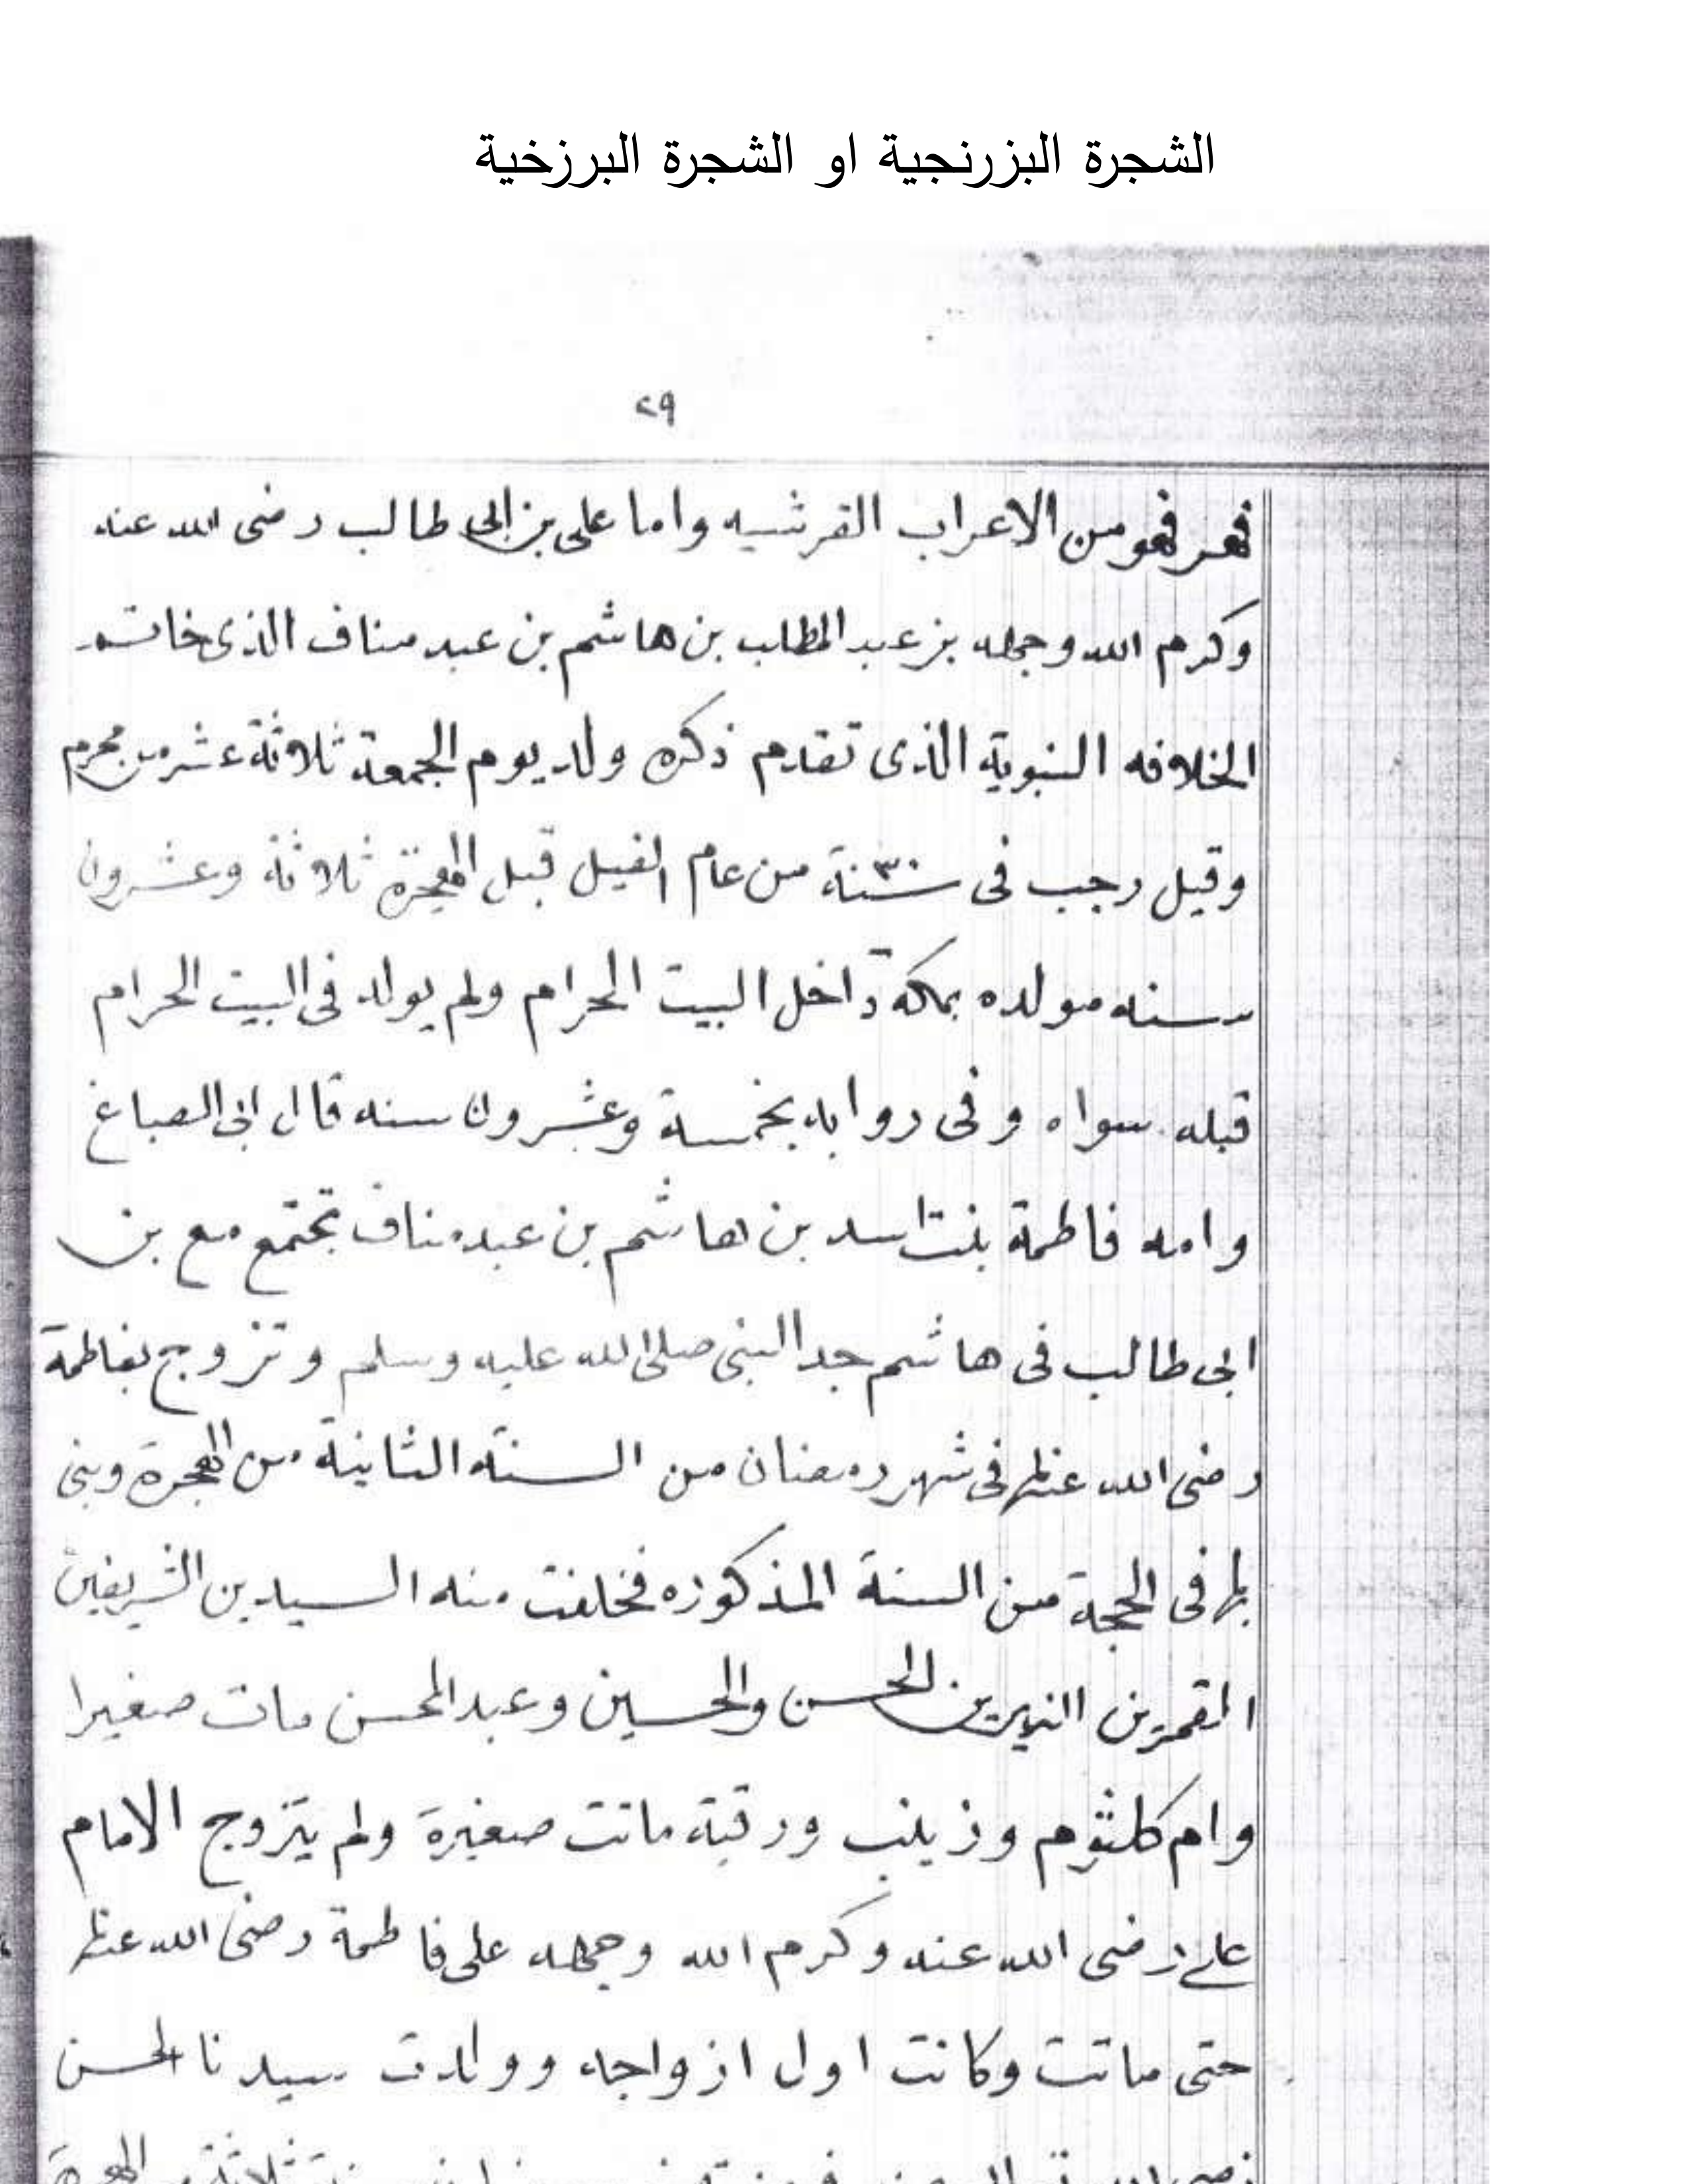 الشجرة البزرنجية او الشجرة البرزخية
٢٩
فهر فهو من الاعراب القرشيه واما على بن ابى طالب رضى الله عنه
وكرم الله وجهه بن عبد المطلب بن هاشم بن عبد مناف الذى خاتمه
الخلافه النبوية الذى تقدم ذكره ولد يوم الجمعة ثلاثة عشر من محرم
وقيل رجب فى سنة ٣٠ من عام الفيل قبل الهجرة ثلاثة وعشرون
سنه مولده بمكة داخل البيت الحرام ولم يولد فى البيت الحرام
قبله سواه وفى روايه بخمسة وعشرون سنه قال ابى الصباغ
وامه فاطمة بنت اسد بن هاشم بن عبد مناف تجتمع مع بن
ابى طالب فى هاشم جد النبى صلى الله عليه وسلم وتزوج بفاطمة
رضى الله عنها فى شهر رمضان من السنة الثانية من الهجرة وبنى
بها فى الحجة من السنة المذكوره فخلفت منه السيدين الشريفين
القمرين النيرين الحسن والحسين وعبد المحسن مات صغيرا
وام كلثوم وزينب ورقية ماتت صغيرة ولم يتزوج الامام
على رضى الله عنه وكرم الله وجهه على فاطمة رضى الله عنها
حتى ماتت وكانت اول ازواجه وولدت سيدنا الحسن